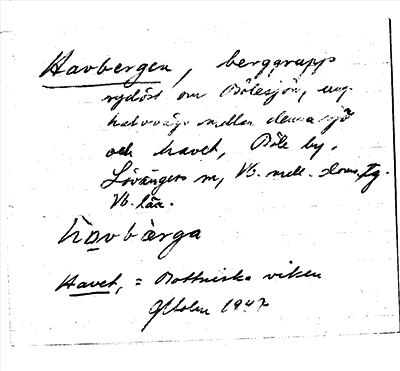 Havbergen, berggrupp
sydöst om Bölesjön, ung.
halvvägs mellan denna sjö
och havet, Böle by,
Lövångers sn, Vb. mell. doms. tg.
Vb. län.
havbærga
Havet, = Bottniska viken
G Holm 1947